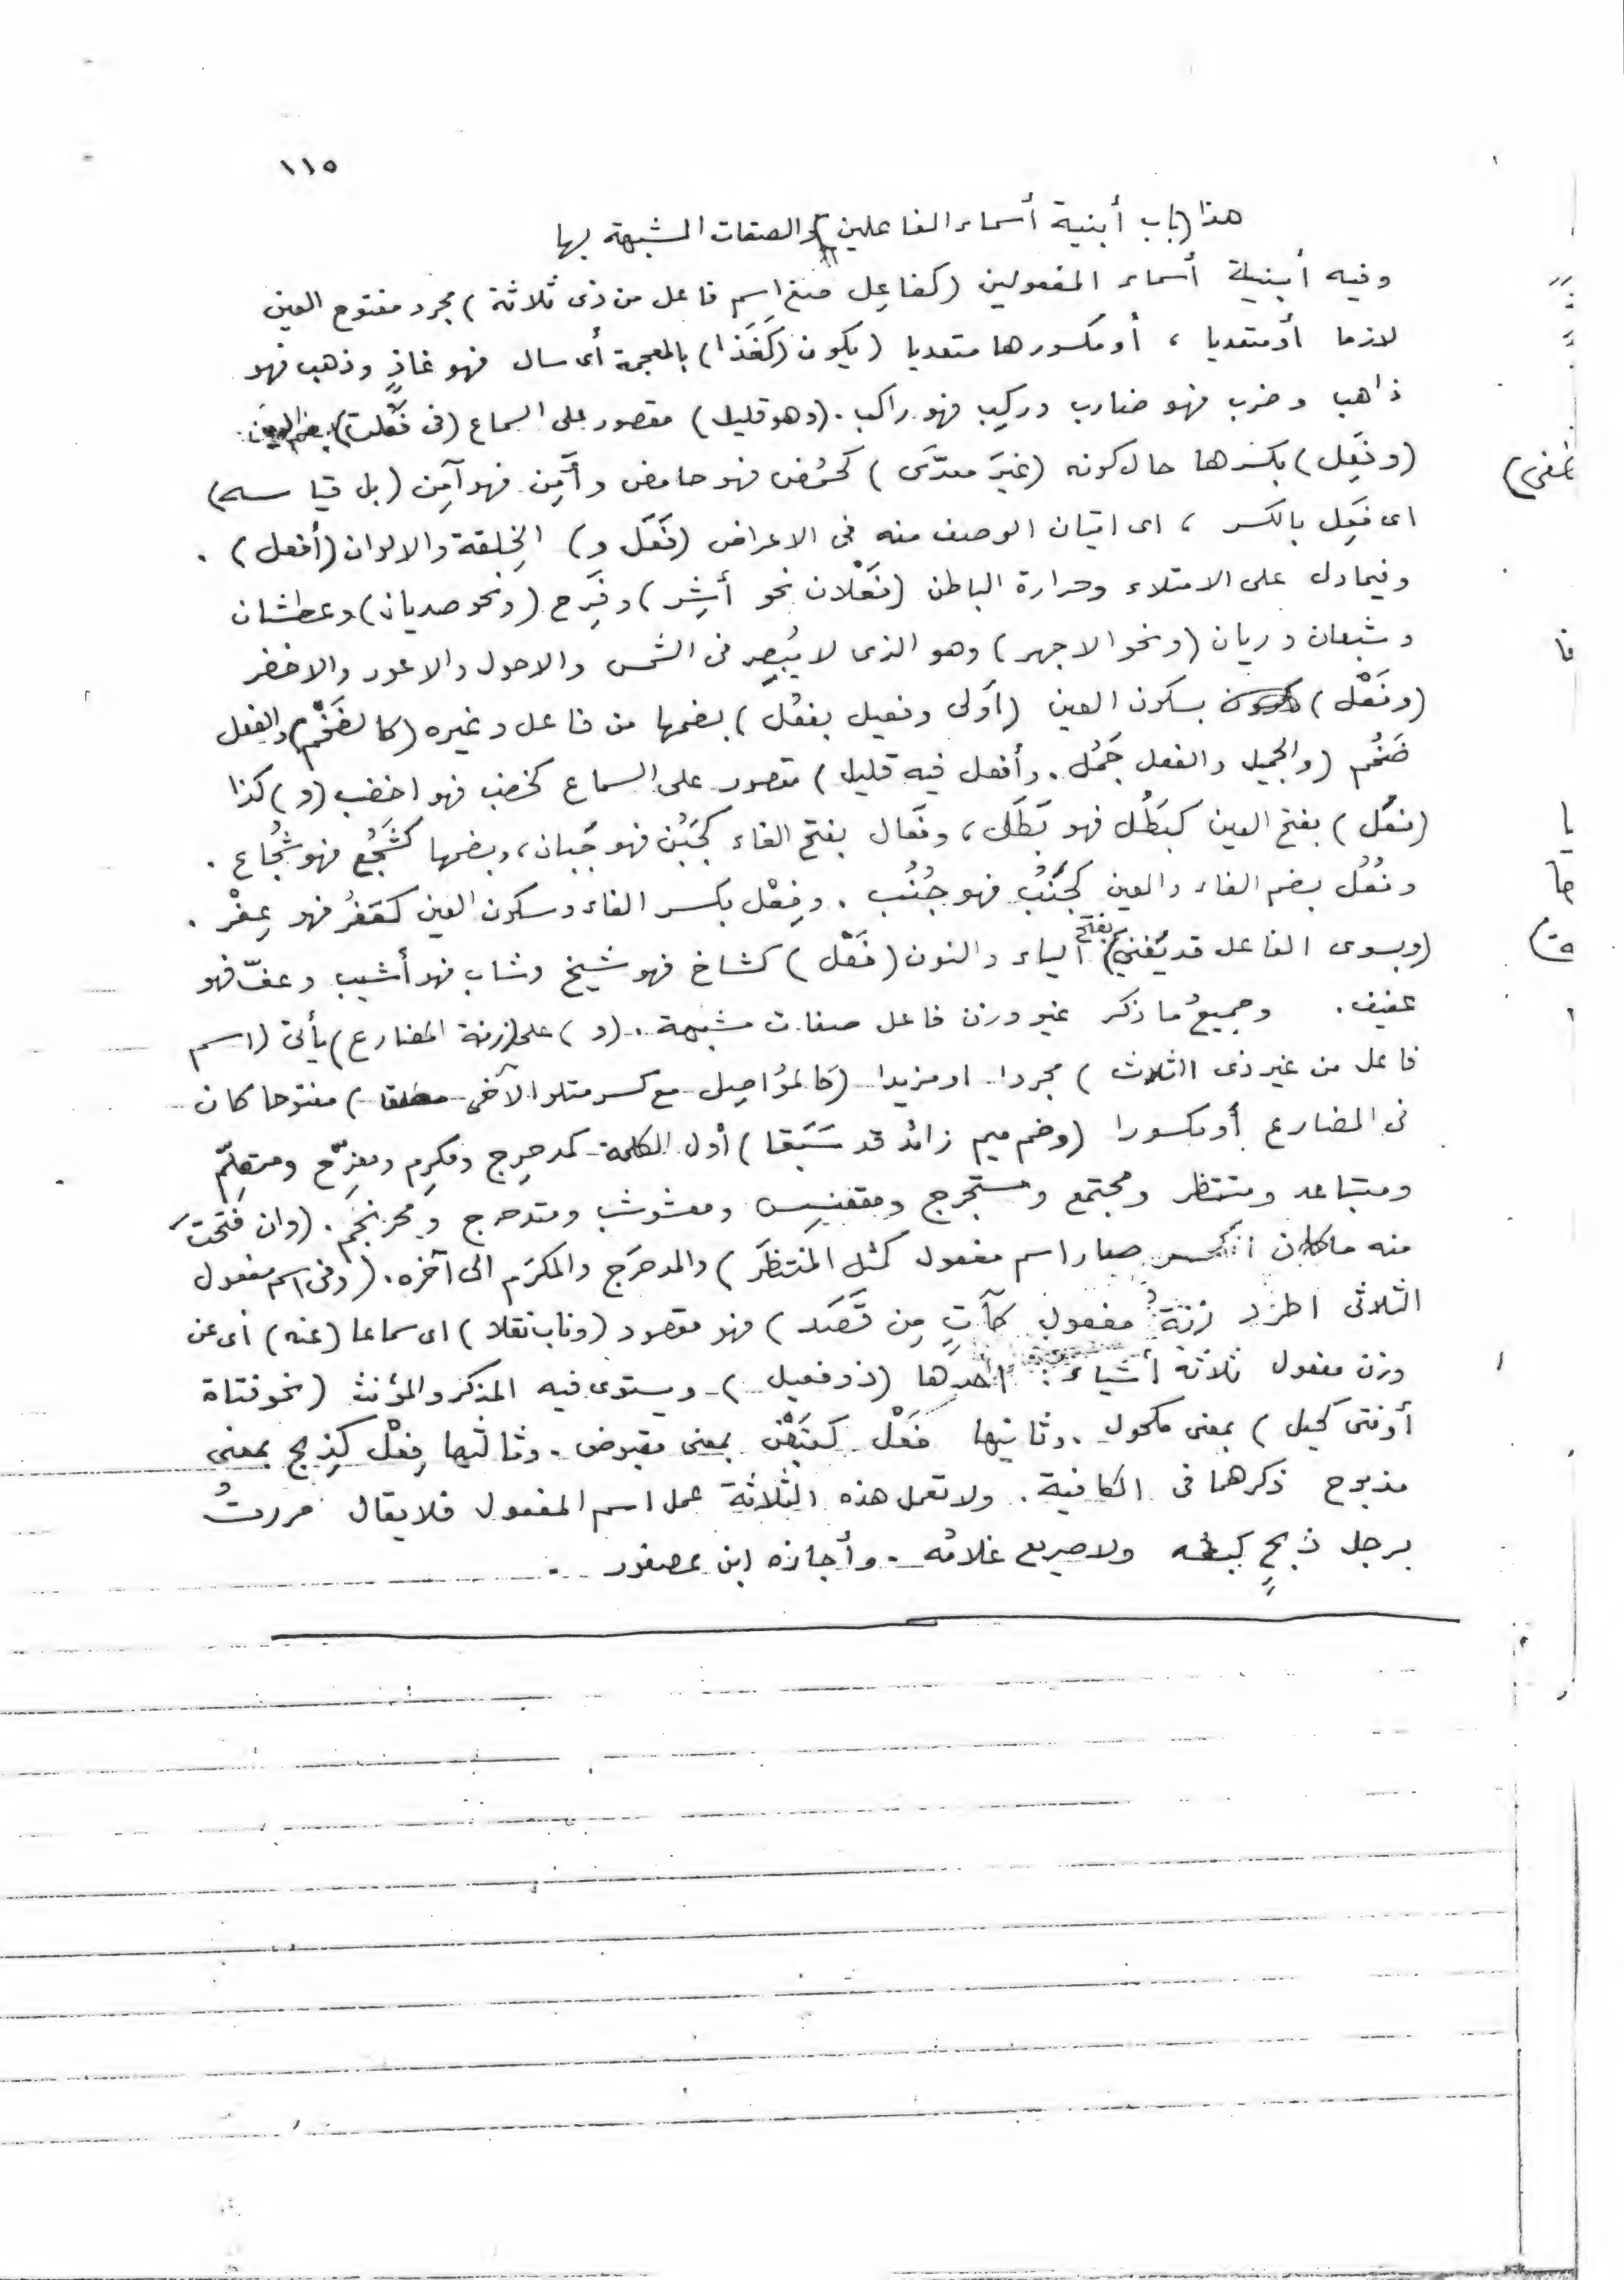 ١١٥
هذا (باب أبنية أسماء الفاعلين) والصفات المشبهة بها
وفيه أبنية أسماء المفعولين (كفاعِل صغ اسم فاعل من ذى ثلاثة) مجرد مفتوح العين
لازما أو متعديا ، أو مكسورها متعديا (يكون (كغَذَا) بالمعجمة أى سال فهو غاذٍ وذهب فهو
ذاهب وضرب فهو ضارب وركِب فهو راكب . (وهو قليل) مقصور على السماع (فى فَعُلت) بضم العين
(وفَعِل) بكسرها حال كونه (غيرَ معدَّى) كحمُض فهو حامض وأَمِن فهو آمِن (بل قياسه)
اى فَعِل بالكسر ، اى اتيان الوصف منه فى الاعراض (فَعِل و) الخِلقة والالوان (أفعل) .
وفيما دل على الامتلاء وحرارة الباطن (فَعْلان نحو أشِر) وفَرِح (ونحو صديان) وعطشان
وشبعان وريان (ونحو الاجهر) وهو الذى لا يُبصِر فى الشمس والاحول والاعور والاخضر
(وفَعْل) بسكون العين (أولى وفعيل بفعُل) بضمها من فاعل وغيره (كالضَخْم) والفعل
ضَخُم (والجميل والفعل جَمُل . وأفعل فيه قليل) مقصور على السماع كخضب فهو اخضب (و) كذا
(فعَل) بفتح العين كبَطُل فهو بَطَل ، وفَعال بفتح الفاء كجَبُن فهو جَبان ، وبضمها كشَجُع فهو شُجاع .
وفُعُل بضم الفاء والعين كجَنُبُ فهو جُنُب . وفِعْل بكسر الفاء وسكون العين كعَفُر فهو عِفْر .
(وبسوى الفاعل قد يَغنى) بفتح الياء والنون (فَعَل) كشاخ فهو شيخ وشاب فهو أشيب وعفّ فهو
عفيف . وجميعُ ما ذكر غير وزن فاعل صفات مشبهة . (و) على (زنة المضارع) يأتى (اسم
فاعل من غير ذى الثلاث) مجردا او مزيدا (كالمُواصِل مع كسر متلو الآخر مطلقا) مفتوحا كان
فى المضارع أو مكسورا (وضم ميم زائد قد سَبَقا) أول الكلمة كمدحرِج ومكرِم ومفرِّح ومتعلِّم
ومتباعد ومنتظر ومجتمع ومستخرج ومقعنسِس ومعشوشب ومتدحرج ومحرنجِم . (وان فَتحتَ
منه ما كان انكسر صار اسم مفعول كمثل المنتظَر) والمدحرَج والمكرَم الى آخره . (وفى اسم مفعول
الثلاثى اطرد زنةُ مفعول كآتٍ مِن قَصَد) فهو مقصود (وناب نقلا) اى سماعا (عنه) أى عن
وزن مفعول ثلاثة أشياء : احدها (ذو فعيل) ويستوى فيه المذكر والمؤنث (نحو فتاة
أو فتى كحيل) بمعنى مكحول . وثانيها فَعَل كقبَض بمعنى مقبوض . وثالثها فِعْل كذِبح بمعنى
مذبوح ذكرهما فى الكافية . ولا تعمل هذه الثلاثة عمل اسم المفعول فلا يقال مررتُ
برجل ذبحٍ كبشه ولا صريع غلامُه . وأجازه ابن عصفور .